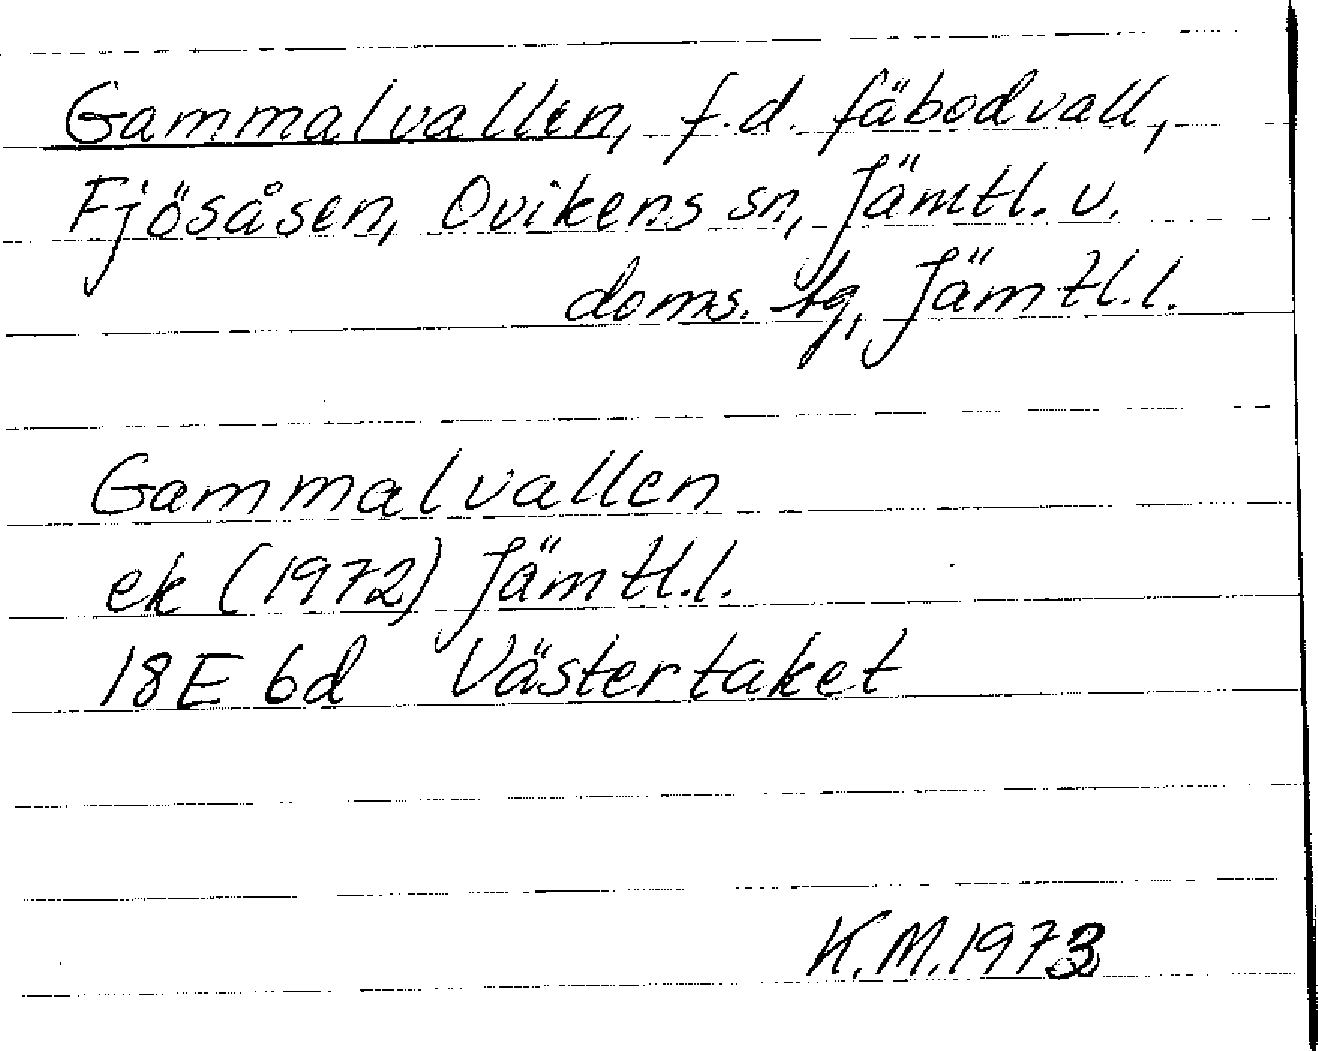 Gammalvallen, f.d. fäbodvall,
Fjösåsen, Ovikens sn, Jämtl. v.
doms. tg, Jämtl. l.
Gammalvallen
ek (1972) Jämtl. l.
18E 6d Västertaket
K.M. 1973